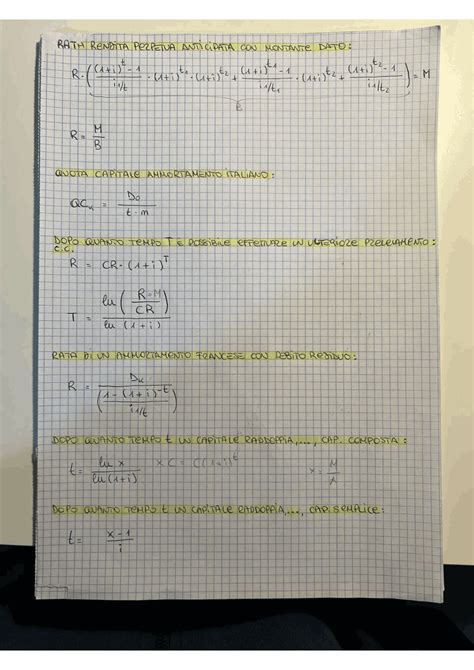 RATA RENDITA PERPETUA ANTICIPATA CON MONTANTE DATO:
R · ( ((1+i)^t - 1) / i1/t · (1+i)^t1 · (1+i)^t2 + ((1+i)^t1 - 1) / i1/t1 · (1+i)^t2 + ((1+i)^t2 - 1) / i1/t2 ) = M
B
R = M / B
QUOTA CAPITALE AMMORTAMENTO ITALIANO:
QCk = D0 / t · m
DOPO QUANTO TEMPO T È POSSIBILE EFFETTUARE UN ULTERIORE PRELEVAMENTO:
C.C.
R = CR · (1+i)^T
T = ln ( R=M / CR ) / ln (1+i)
RATA DI UN AMMORTAMENTO FRANCESE CON DEBITO RESIDUO:
R = Dk / ( (1 - (1+i)^-t) / i1/t )
DOPO QUANTO TEMPO t UN CAPITALE RADDOPPIA,..., CAP. COMPOSTA:
t = ln x / ln(1+i) x C = C(1+i)^t x = M /
DOPO QUANTO TEMPO t UN CAPITALE RADDOPPIA,..., CAP. SEMPLICE:
t = x - 1 / i